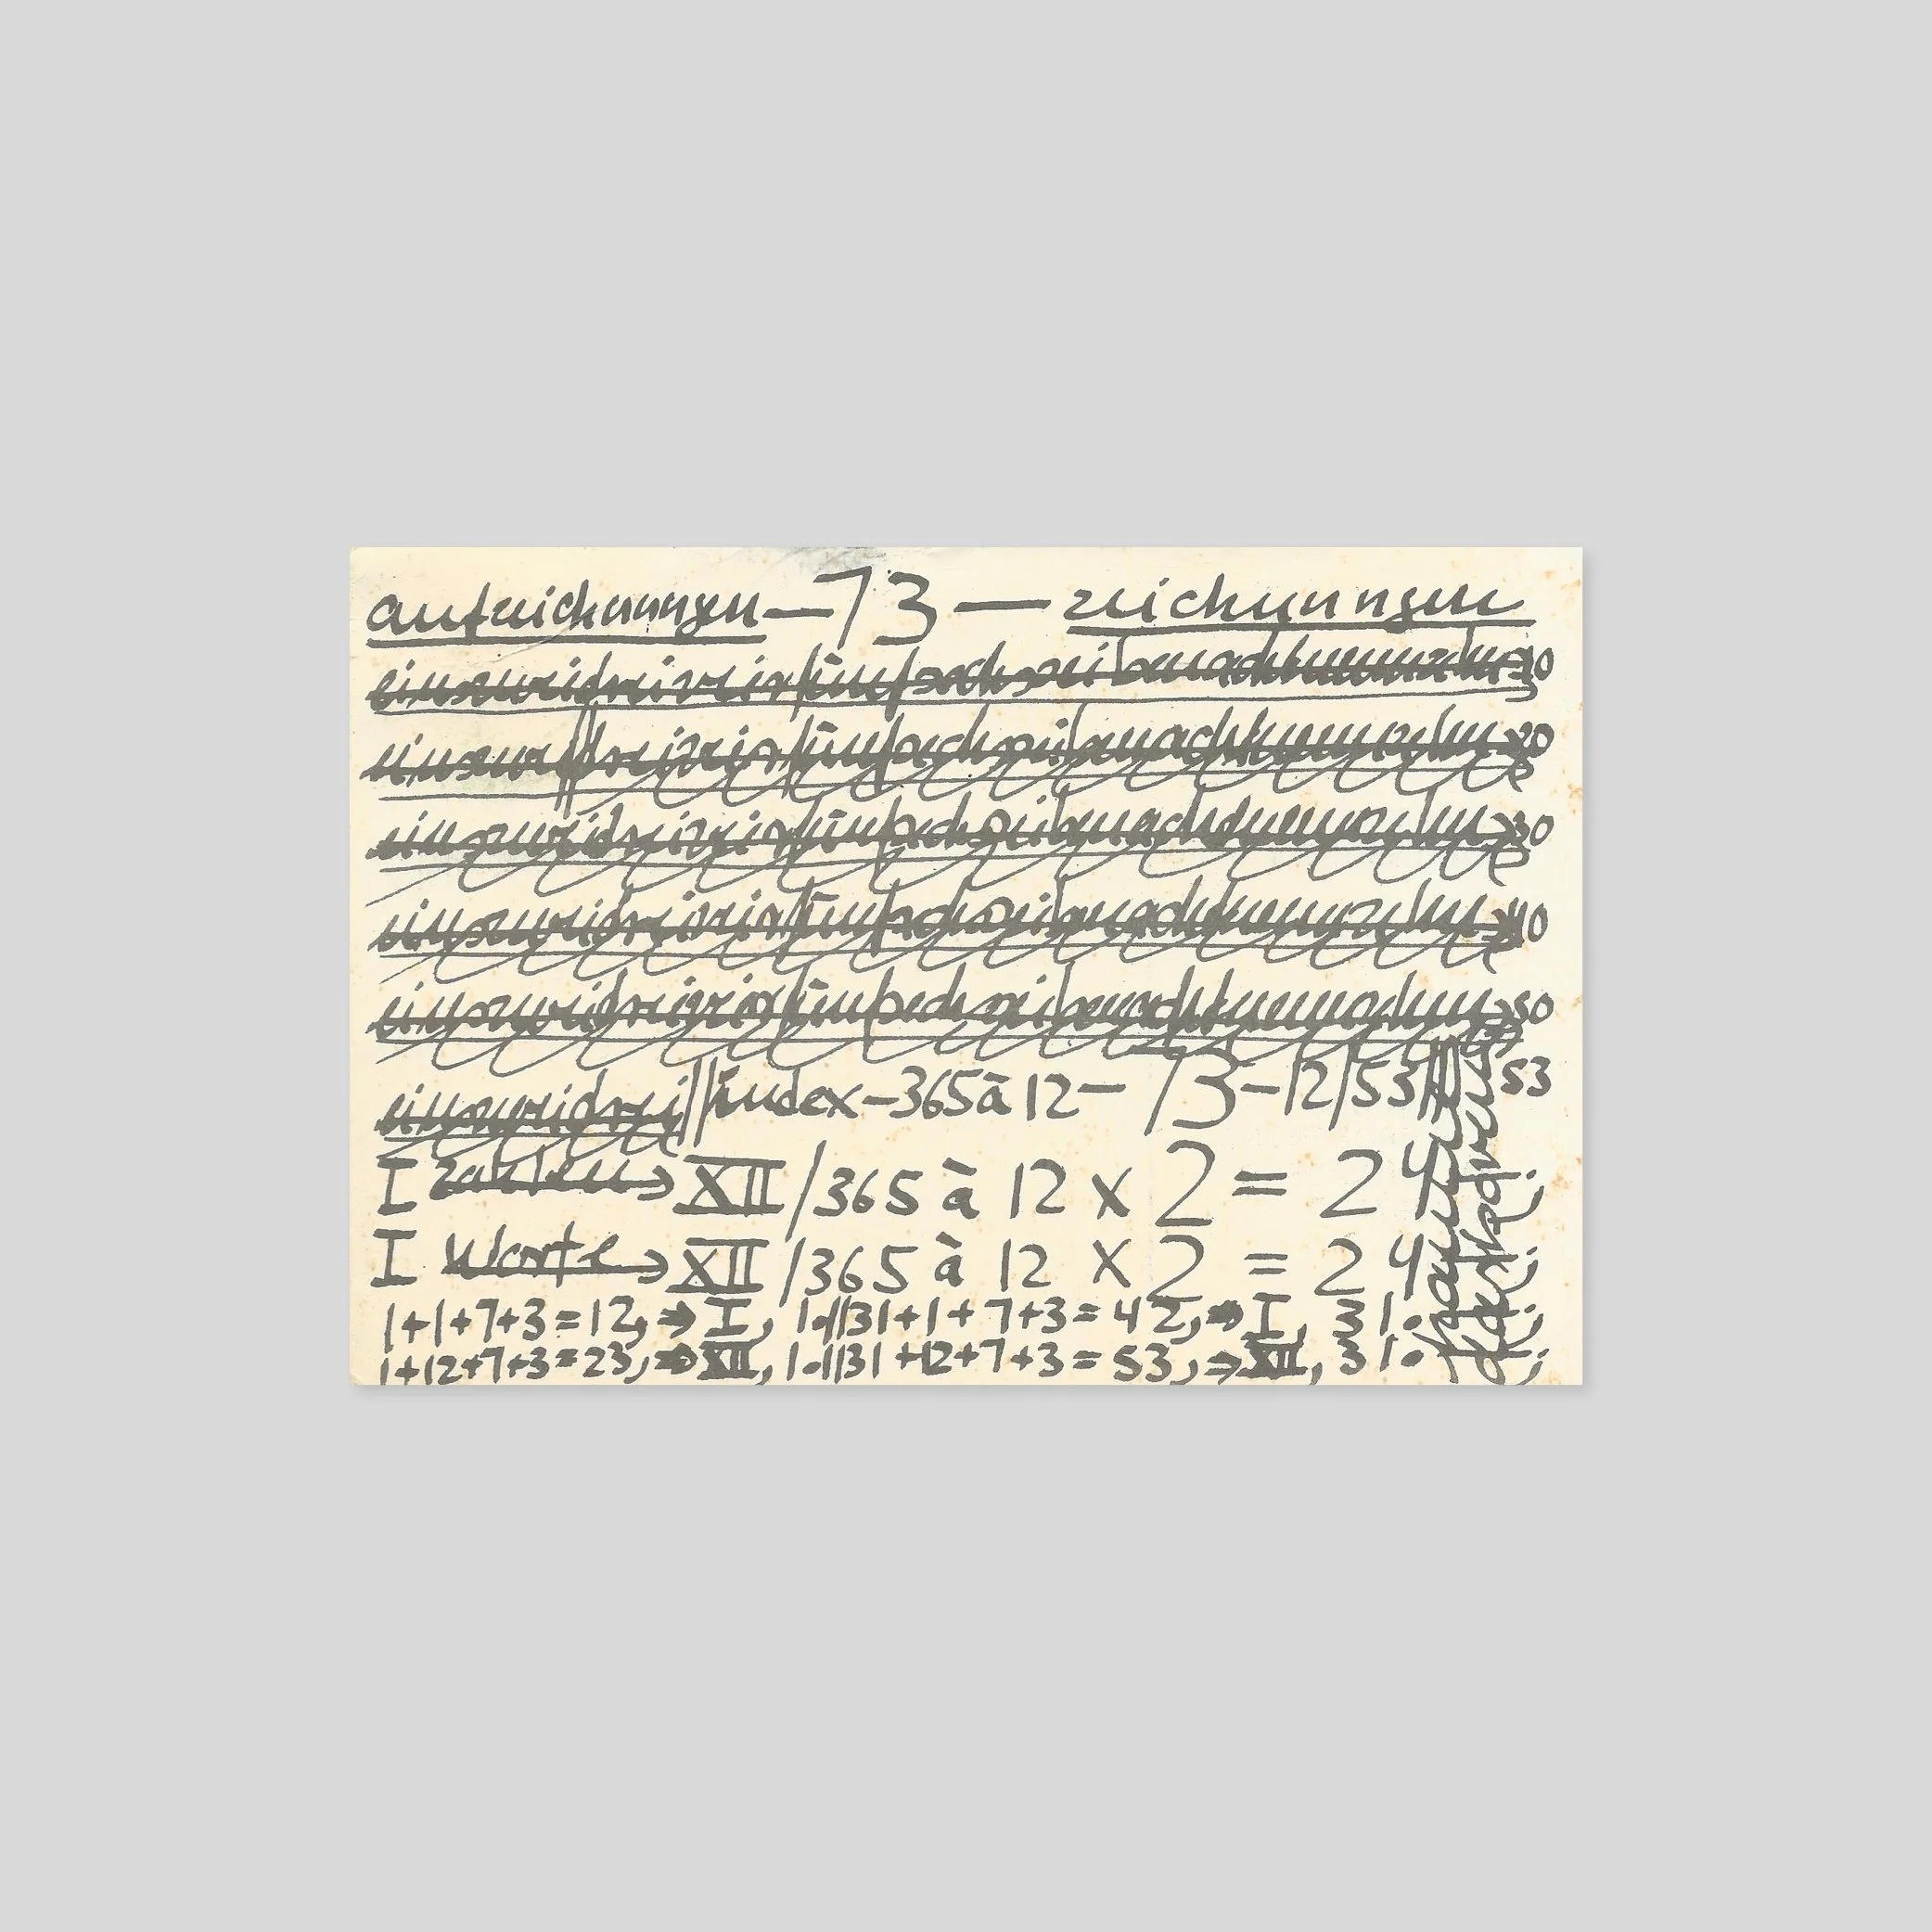 aufzeichnungen — 73 — zeichnungen
einszweidreivierfünfsechssiebenachtneunzehn 10
einszwei||dreivierfünfsechssiebenachtneunzehn 20
einszweidreivierfünfsechssiebenachtneunzehn 30
einszweidreivierfünfsechssiebenachtneunzehn 40
einszweidreivierfünfsechssiebenachtneunzehn 50
einszweidrei||index-365à12-73-12/53 53
I zahlen→XII/365 à 12 x 2 = 24
I Worte→XII/365 à 12 x 2 = 24
1+1+7+3=12,⇒I, 1.//31+1+7+3=42,⇒I, 31.
1+12+7+3=23,⇒XII, 1.//31+12+7+3=53,⇒XII, 31.
hanne darboven